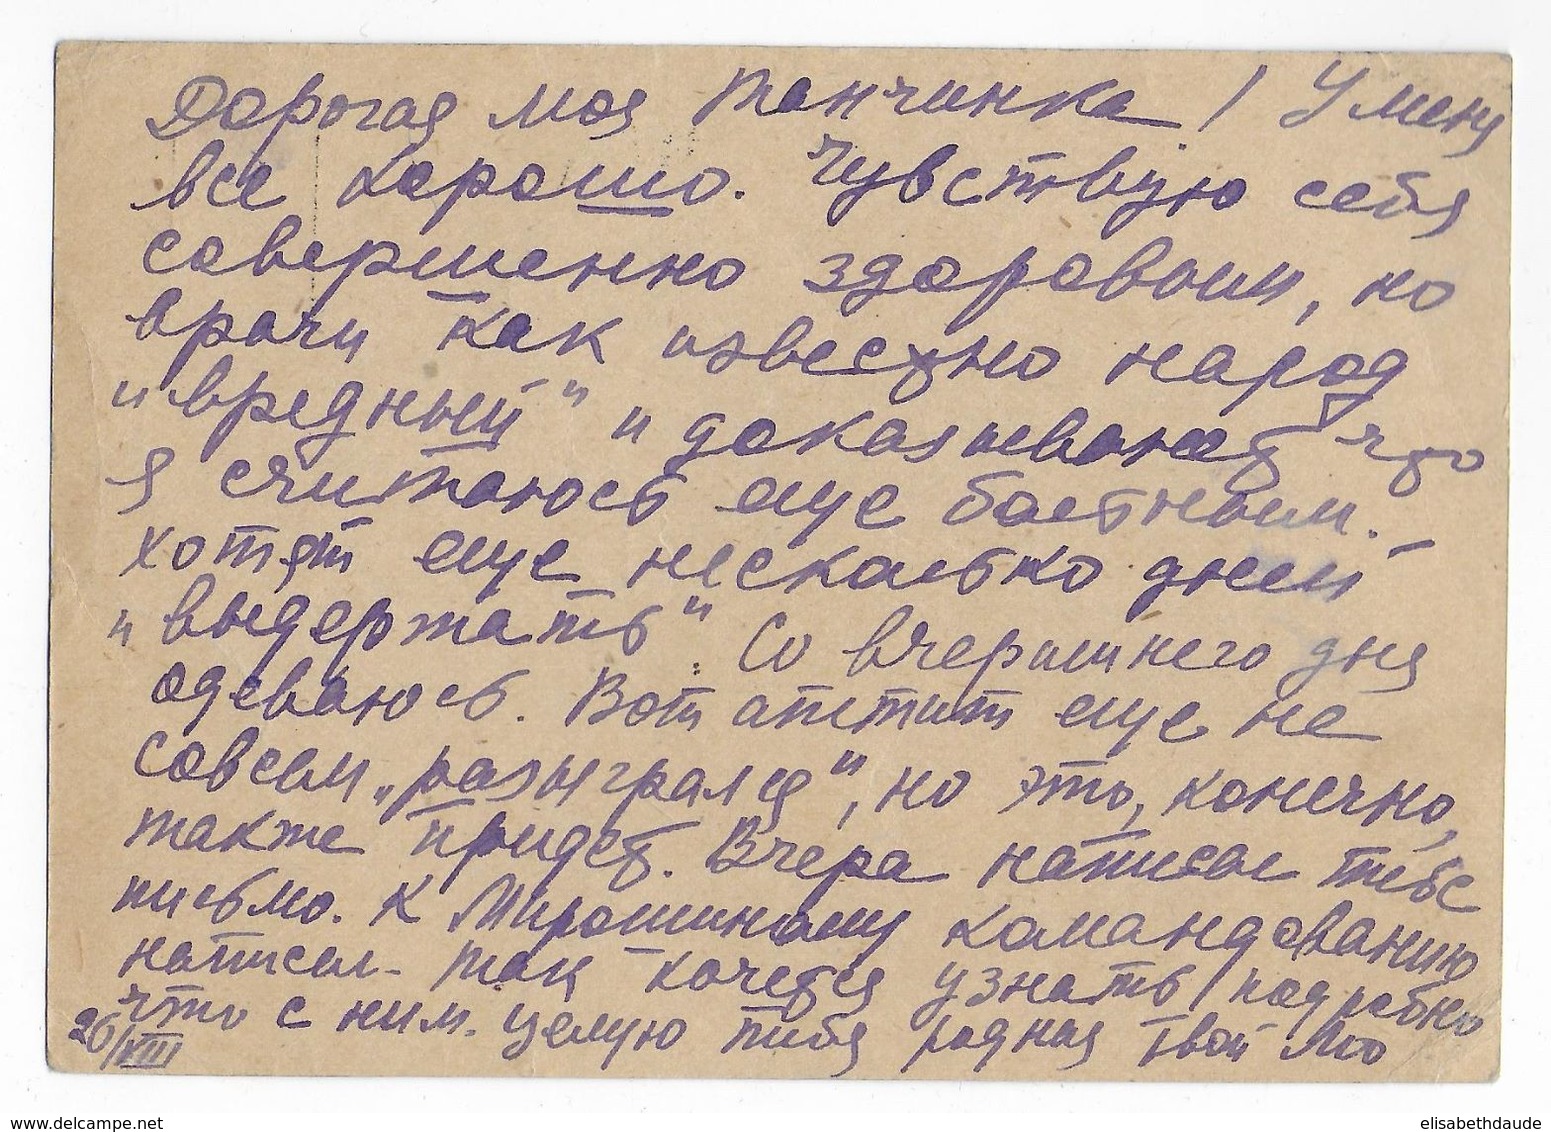 Дорогая моя Танчинка! У меня
все хорошо. Чувствую себя
совершенно здоровым, но
врачи как известно народ
"вредный" и доказывают что
я считаюсь еще больным. –
хотят еще несколько дней
"выдержать". Со вчерашнего дня
одеваюсь. Вот аппетит еще не
совсем „разыгрался", но это, конечно,
также придет. Вчера написал тебе
письмо. К Мирошиному командованию
написал – так хочется узнать подробно
что с ним. Целую тебя родная твой
26/VIII
www.delcampe.net
elisabethdaude